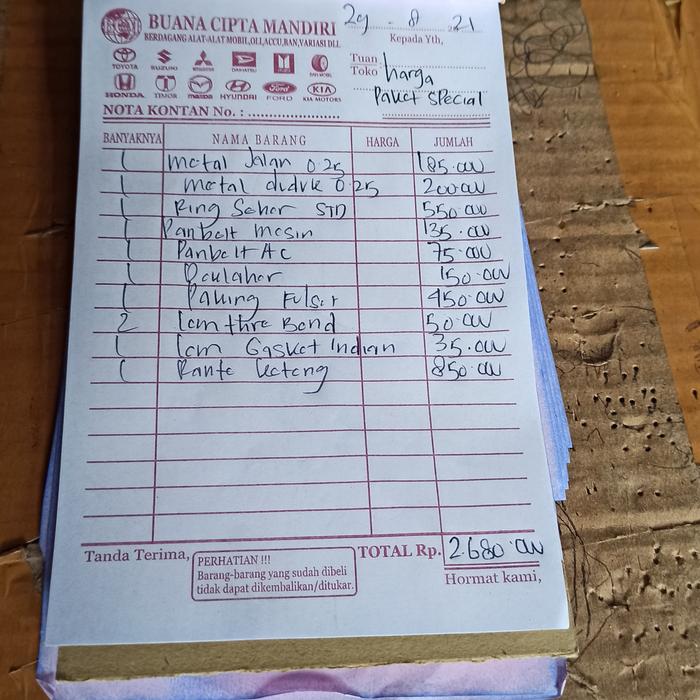 BUANA CIPTA MANDIRI
BERDAGANG ALAT-ALAT MOBIL,OLI,ACCU,BAN,VARIASI DLL
29 - 8 - 21
Kepada Yth,
Tuan
Toko
harga
Paket special
TOYOTA SUZUKI MITSUBISHI DAIHATSU ISUZU
HONDA TIMOR mazda HYUNDAI FORD KIA MOTORS
NOTA KONTAN No. :
BANYAKNYA NAMA BARANG HARGA JUMLAH
1 Metal Jalan 0.25 185.000
1 Metal duduk 0.25 200.000
1 Ring Seher STD 550.000
1 Panbelt mesin 135.000
1 Panbelt Ac 75.000
1 150.000
1 Paking Fulser 450.000
2 lem thre Bond 50.000
1 lem Gasket Indian 35.000
1 Rante keteng 850.000
Tanda Terima,
PERHATIAN !!!
Barang-barang yang sudah dibeli
tidak dapat dikembalikan/ditukar.
TOTAL Rp. 2.680.000
Hormat kami,